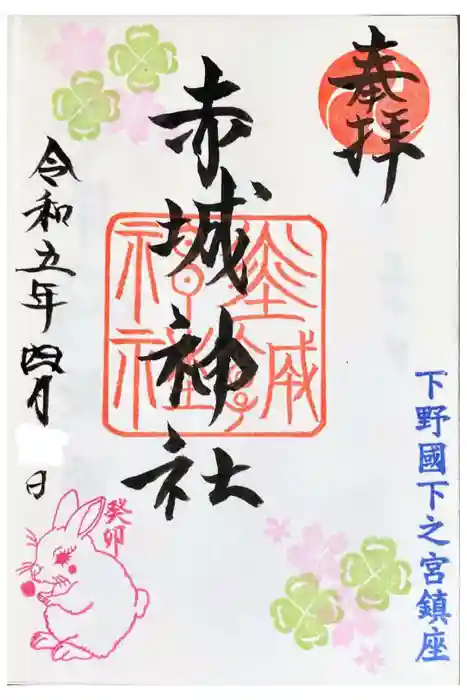 奉拝
下野國下之宮鎮座
赤城神社
令和五年四月 日
癸卯